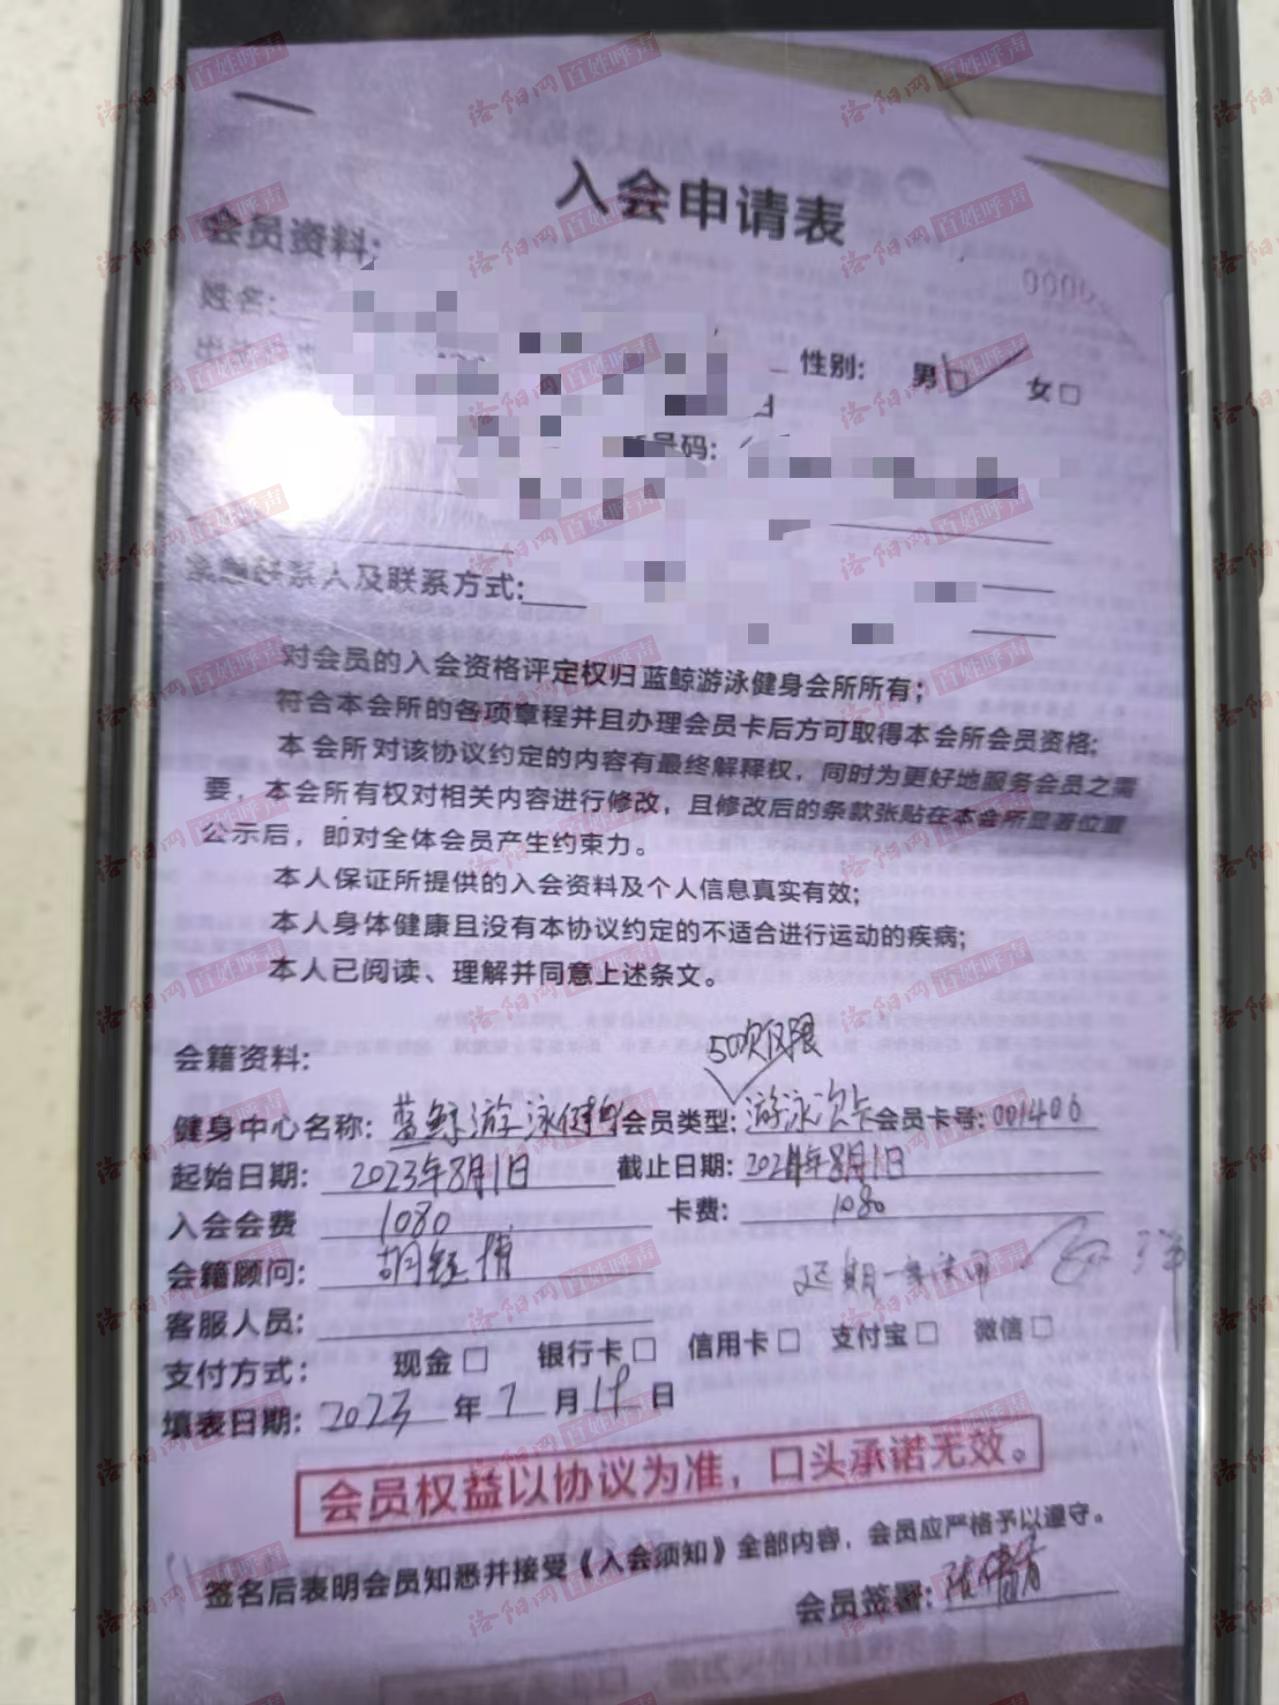 入会申请表
会员资料:
0000
姓名:
性别: 男□ 女□
号码:
联系人及联系方式:
对会员的入会资格评定权归蓝鲸游泳健身会所所有;
符合本会所的各项章程并且办理会员卡后方可取得本会所会员资格;
本会所对该协议约定的内容有最终解释权，同时为更好地服务会员之需
要，本会所有权对相关内容进行修改，且修改后的条款张贴在本会所显著位置
公示后，即对全体会员产生约束力。
本人保证所提供的入会资料及个人信息真实有效;
本人身体健康且没有本协议约定的不适合进行运动的疾病;
本人已阅读、理解并同意上述条文。
50次仅限
会籍资料:
健身中心名称: 蓝鲸游泳健 会员类型: 游泳次卡 会员卡号: 001406
起始日期: 2023年8月1日 截止日期: 2024年8月1日
入会会费 1080 卡费: 1080
会籍顾问: 胡
延期一
客服人员:
支付方式: 现金□ 银行卡□ 信用卡□ 支付宝□ 微信□
填表日期: 2023年7月19日
会员权益以协议为准，口头承诺无效。
签名后表明会员知悉并接受《入会须知》全部内容，会员应严格予以遵守。
会员签署:
洛阳网 百姓呼声